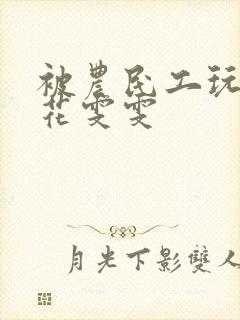 被農民工玩
花雯雯
月光下影雙人